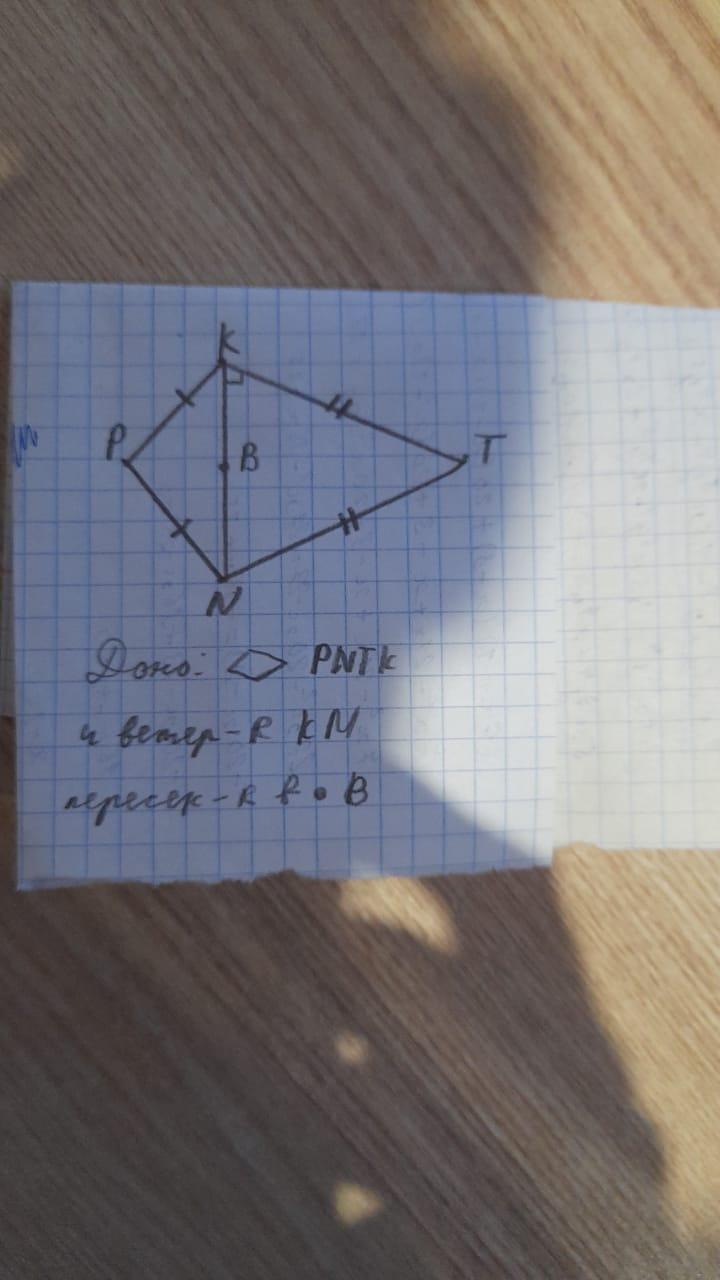 K
P B T
N
Дано: PNTK
и вектр-к KN
пересек-к в • B